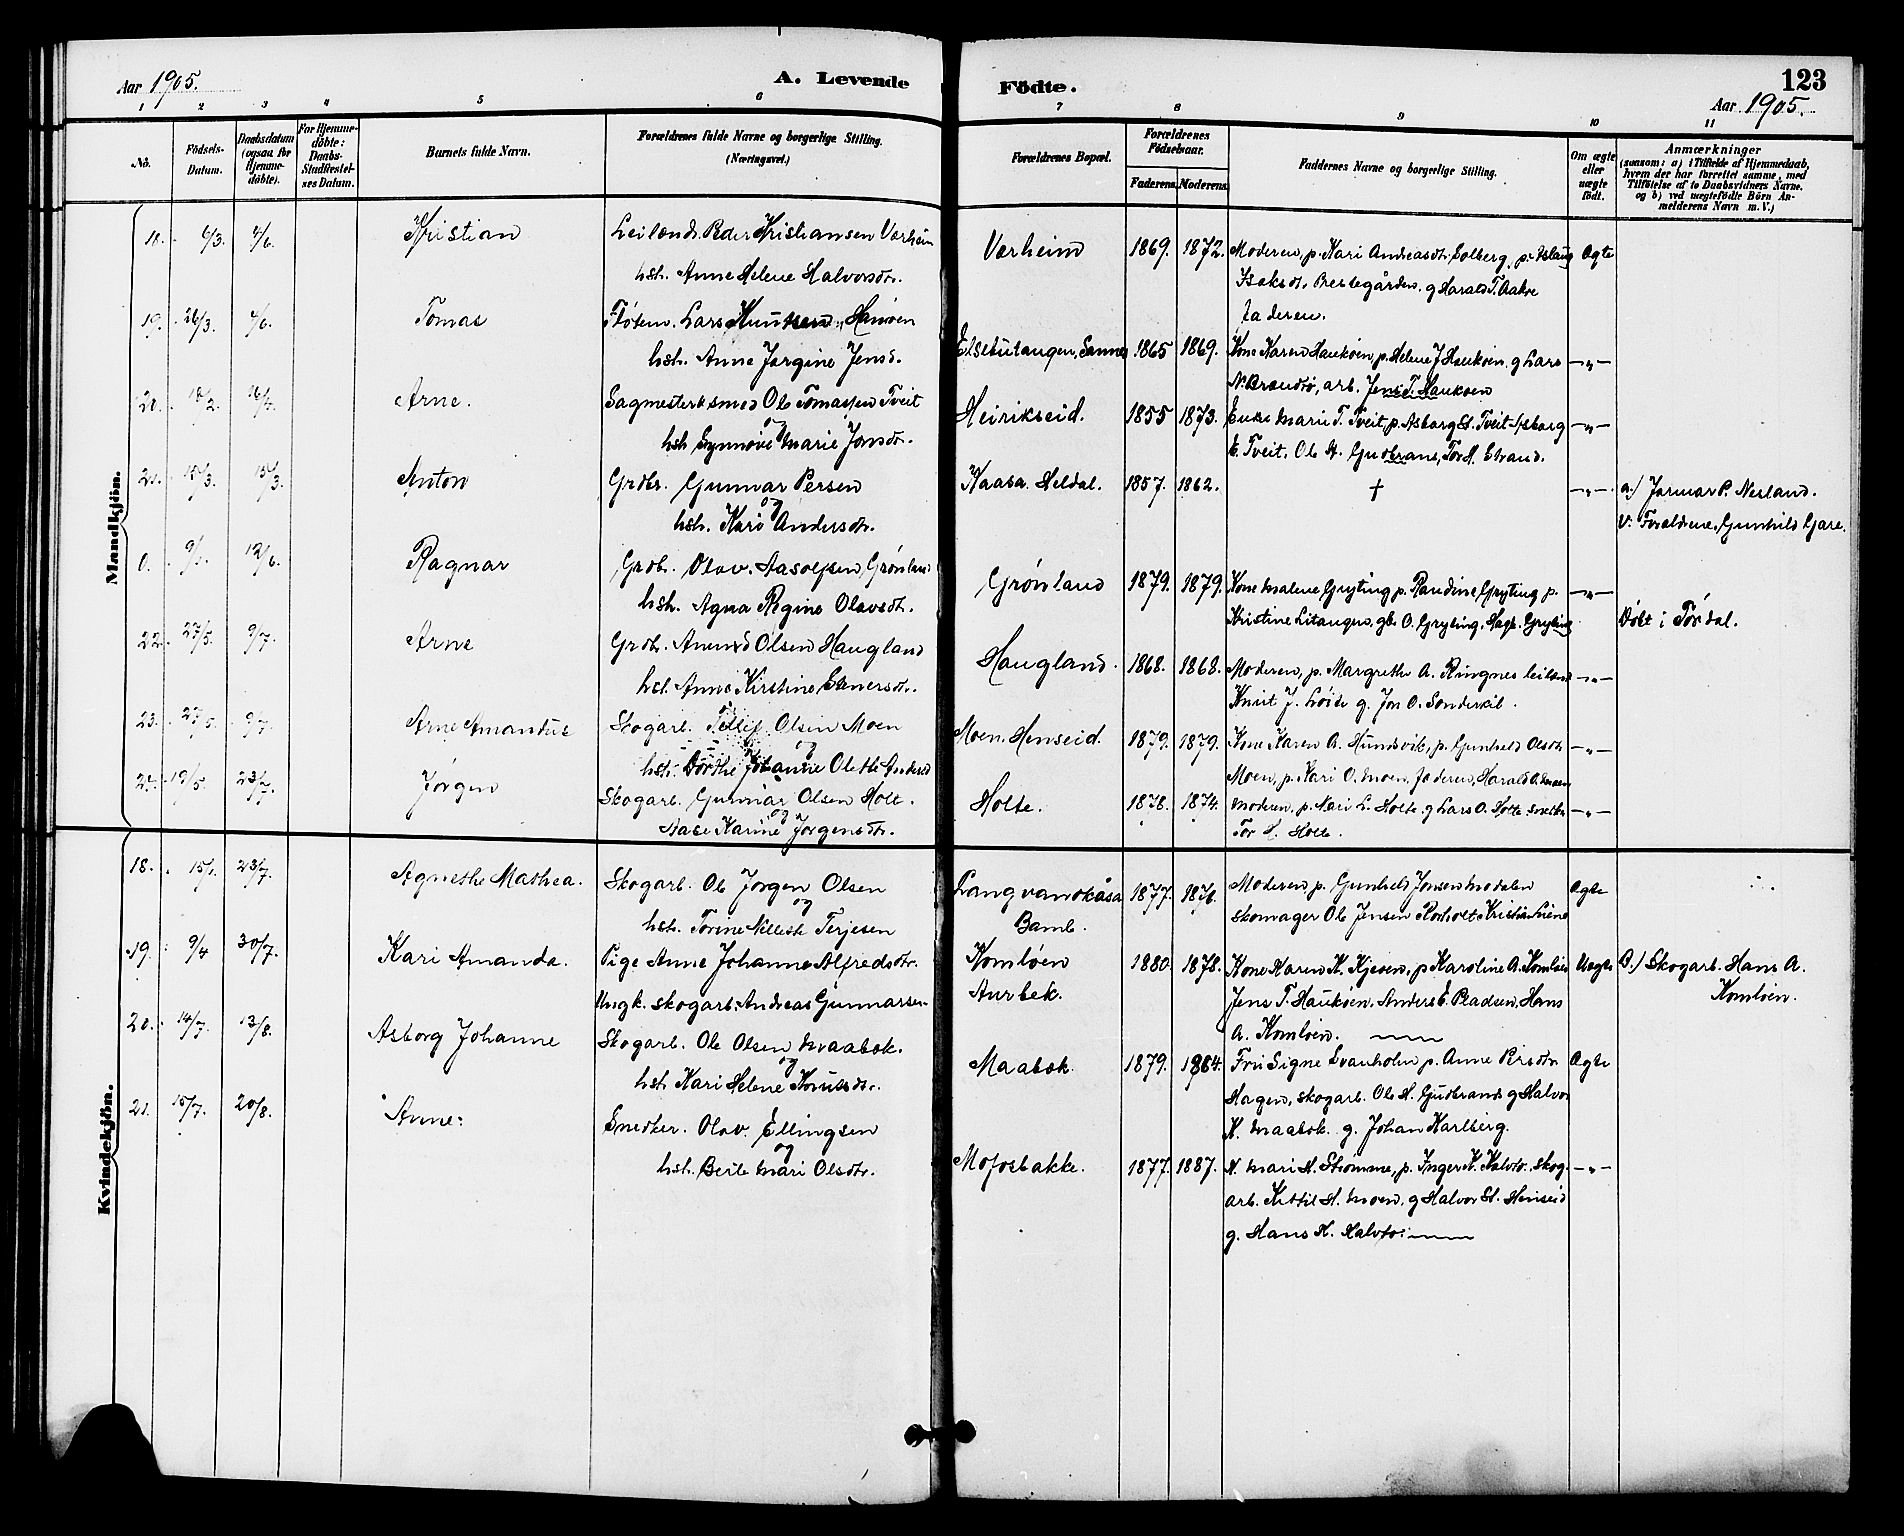 Aar 1905.
A. Levende
Födte.
123
Aar 1905.
1 2 3 4 5 6 7 8 9 10 11
No.
Födsels-Datum.
Daabsdatum (ogsaa for Hjemme-döbte).
For Hjemme-döbte: Daabs-Stadfæstel-ses Datum.
Barnets fulde Navn.
Forældrenes fulde Navne og borgerlige Stilling.
(Næringsvei.)
Forældrenes Bopæl.
Forældrenes Födselsaar.
Faderens. Moderens.
Faddernes Navne og borgerlige Stilling.
Om ægte eller uægte födt.
Anmærkninger
(saasom: a) i Tilfælde af Hjemmedaab,
hvem der har forrettet samme, med
Tilföielse af to Daabsvidners Navne.
og b) ved uægtefödte Börn An-
melderens Navn m. V.)
Mandkjön.
18. 6/3. 4/6. Kristian
Leilænd. Peder Kristiansen Varheim
hst. Anne Helene Halvorsdtr.
Værheim 1869. 1872. Moderen, p. Kari Andreasdtr. Solberg, p. Aslaug Ægte
Isaksdtr. Prestegården, g Harald T. Aakre
faderen.
19. 26/3. 4/6. Tomas
Fløtem. Lars Knutsen, Hauøen
hst. Anne Jørgine Jensd.
Elsebutangen, Sannes 1865 1869. Kone Karen Haukøen, p. Helene J Haukøen, g Lars —"—
N. Brandsø, arb. Jens T. Haukøen
20. 16/4. Arne.
Sagmesterksmed Ole Tomassen Tveit
og
hst. Synnøve Marie Jonsdtr.
Heirikseid. 1855 1873. Enke Marie T. Tveit, p. Asborg St. Tveit Asborg —"—
E. Tveit, Ole H. Gudbrans, Tor H. Strand.
21. 15/3. 15/3. Anton
Grdbr. Gunnar Persen
og
hst. Kari Andersdtr.
Kaasa. Heldal. 1857. 1862. † —"— a.) Jarmar P. Nesland.
V. Forældrene, Gunhild Gare.
0. 12/6. Ragnar
Grdbr. Olav. Aasolfsen, Grønland
hst. Agna Regine Olavsdtr.
Grønland 1879. 1879. Kone Malene Gryting p. Randine Gryting p. —"—
Kristine Litangen, gb. O. Gryting, Hagb. Gryting
Døbt i Tørdal.
22. 27/5. 9/7. Arne
Grdbr. Amund Olsen Haugland
hst. Anne Kirstine Einersdtr.
Haugland. 1868. 1868. Moderen, p. Margrethe A. Ringnes leilænd —"—
Knut J. Løite g. Jon O. Sonderkil.
23. 27/5. 9/7. Arne Amandus
Skogarb. Tellef Olsen Moen
og
hst. Dorthe Johanne Olette Andersd
Moen. Henseid. 1879. 1879. Kone Karen A. Hundsvik, p. Gunhild Olsdtr —"—
Moen, p. Kari O. Moen, faderen, Harald O. Moen
24. 19/5. 23/7. Jørgen
Skogarb. Gunnar Olsen Holt.
og
Aase Karine Jørgensdtr.
Holte. 1878. 1874. Moderen, p. Mari L. Holte, g Lars O. Holte —"—
Tor H. Holte.
Kvindekjön.
18. 15/1. 23/7. Agnethe Mathea.
Skogarb. Ole Jørgen Olsen
og
hst. Torine Nilleth Terjesen
Langvandkåsa 1877. 1876. Moderen, p. Gunhild Jensen Modalen Ægte
Bamb. skomager Ole Jensen Rørholt
19. 9/4 30/7. Kari Amanda.
Pige Anne Johanne Alfredsdtr.
Ungk. skogarb. Andreas Gunnarsen
Komløen 1880. 1878. Kone Karen K. Kjøen, p Karoline A. Komløen Uægte B.) Skogarb. Hans A.
Aurbek. Jens T. Haukøen, Anders E. Pladsen, Hans Komløen.
A. Komløen.
20. 14/7. 13/8. Asborg Johanne
Skogarb. Ole Olsen Maabek.
og
hst. Kari Helene Knutsdtr.
Maabek. 1879. 1884. Fru Signe Svanholm p. Anne Persdtr Ægte
Hagen, skogarb. Ole H. Gudbrands g Halvor
K. Maabek. g. Johan Karlberg.
21. 15/7. 20/8. Anne:
Snedker. Olav. Ellingsen
og
hst. Berte Mari Olsdtr.
Mofosbakke. 1877. 1887. K. Mari H. Strømme, p. Inger K. Kalvto, skog- —"—
arb. Kittil H. Moen, g Halvor St. Henseid
g. Hans H. Kalvto.